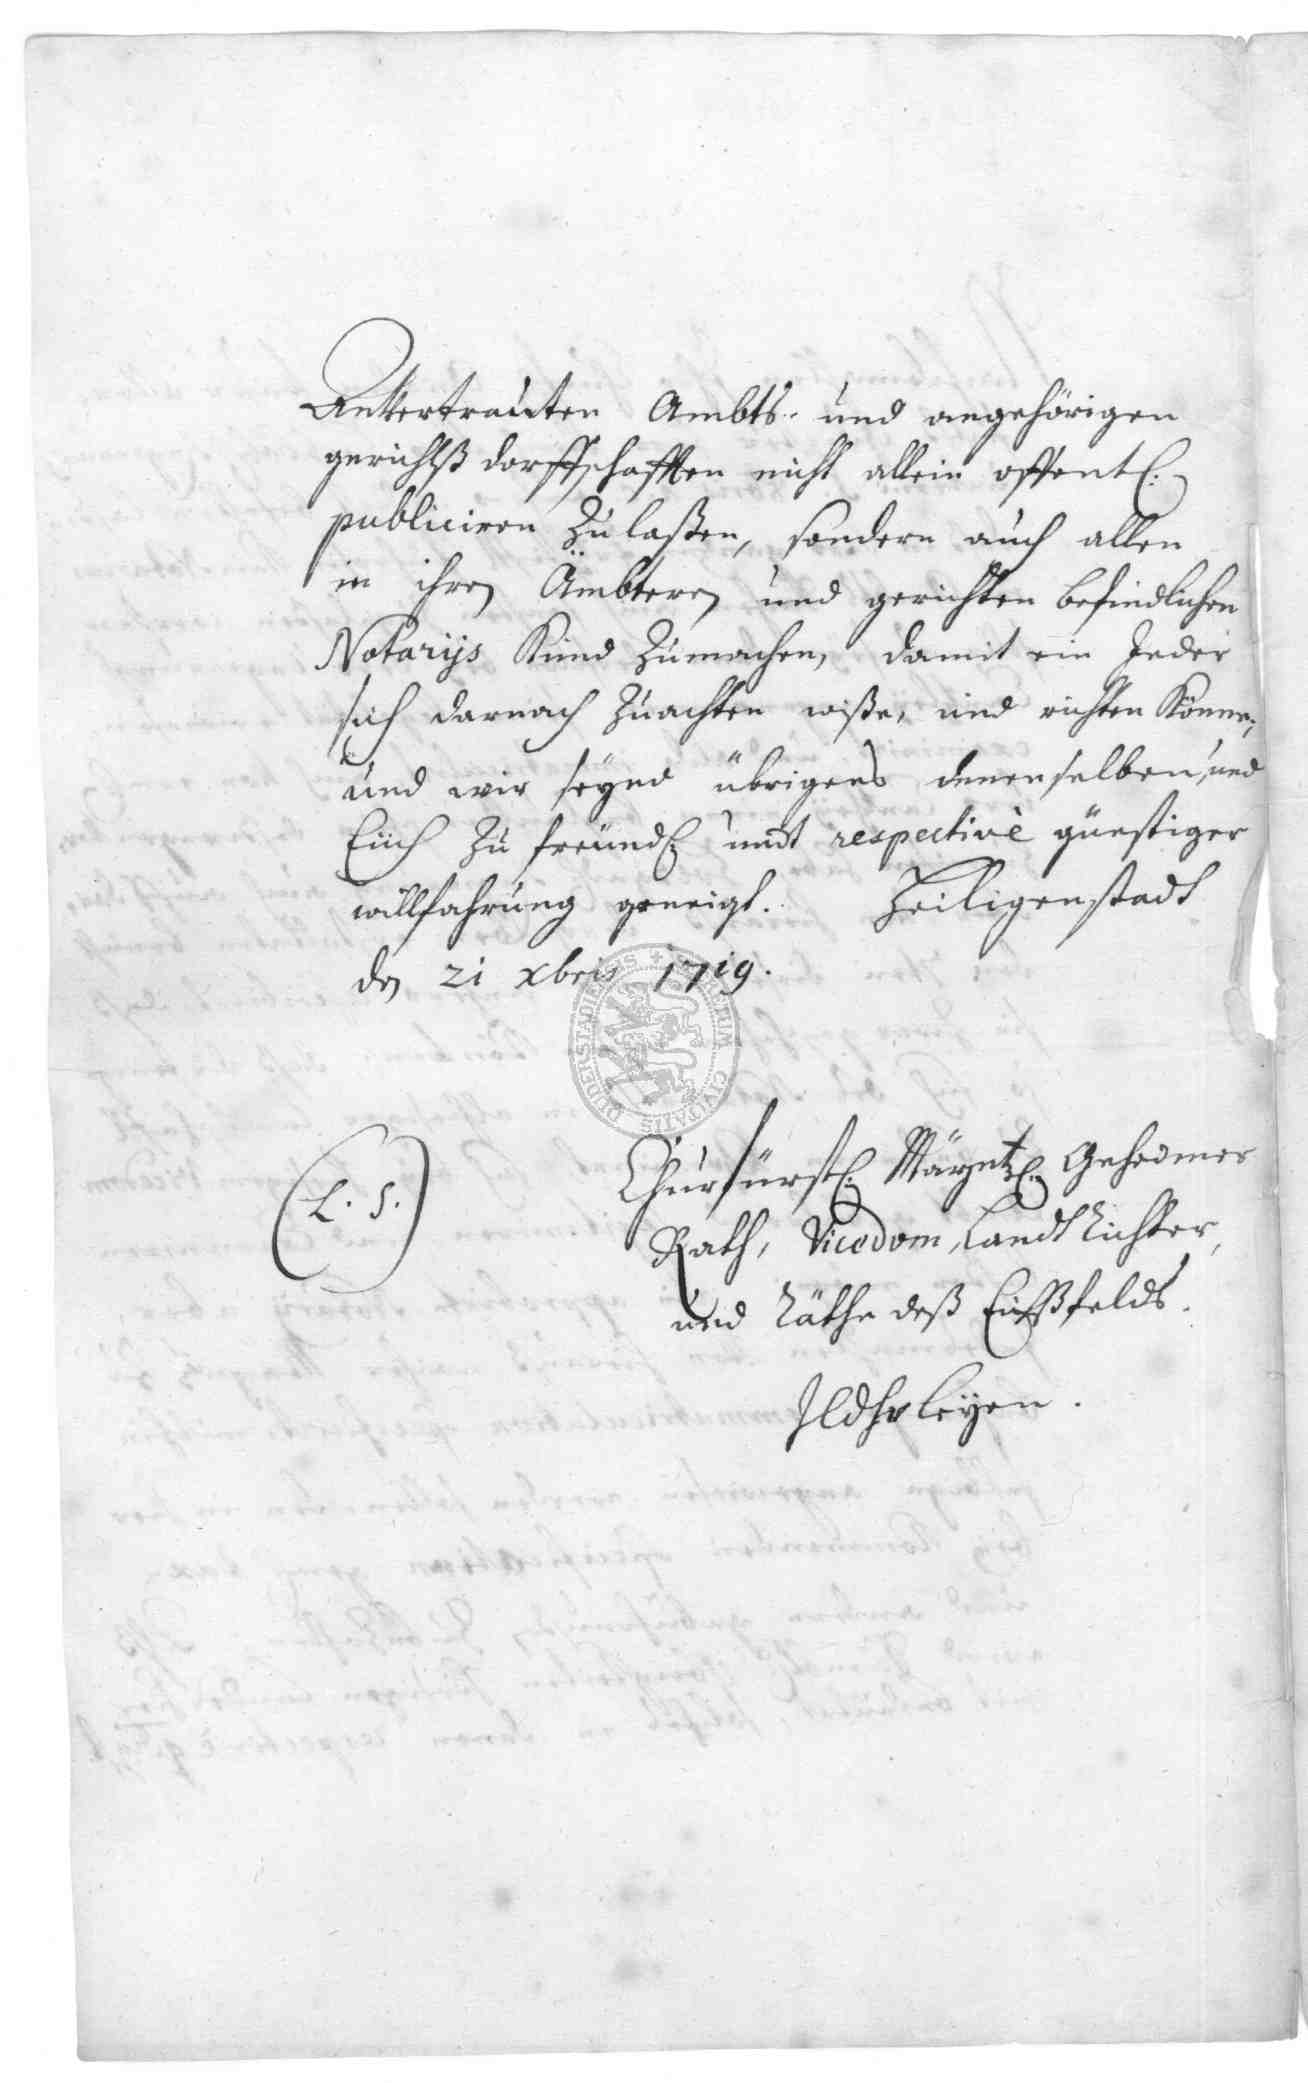 Anvertrauten Ambts- und angehörigen
gerichtß dorffschafften nicht allein offentl:
publiciren zu laßen, sondern auch allen
in ihren Ämbteren und gerichten befindlichen
Notarijs Kund zumachen, damit ein Jeder
sich darnach zuachten wiße, und richten Könne;
und wir seynd übrigens denenselben, und
Euch zu freundl. undt respectivè günstiger
willfahrung geneigt. Heiligenstadt
den 21 xbris 1719.
SIGILLUM CIVITATIS DUDERSTADIENSIS
(L. S.)
Churfürstl: Mäyntzl: Geheimer
Rath, Vicedom, Landt Richter,
und Räthe deß Eichßfelds.